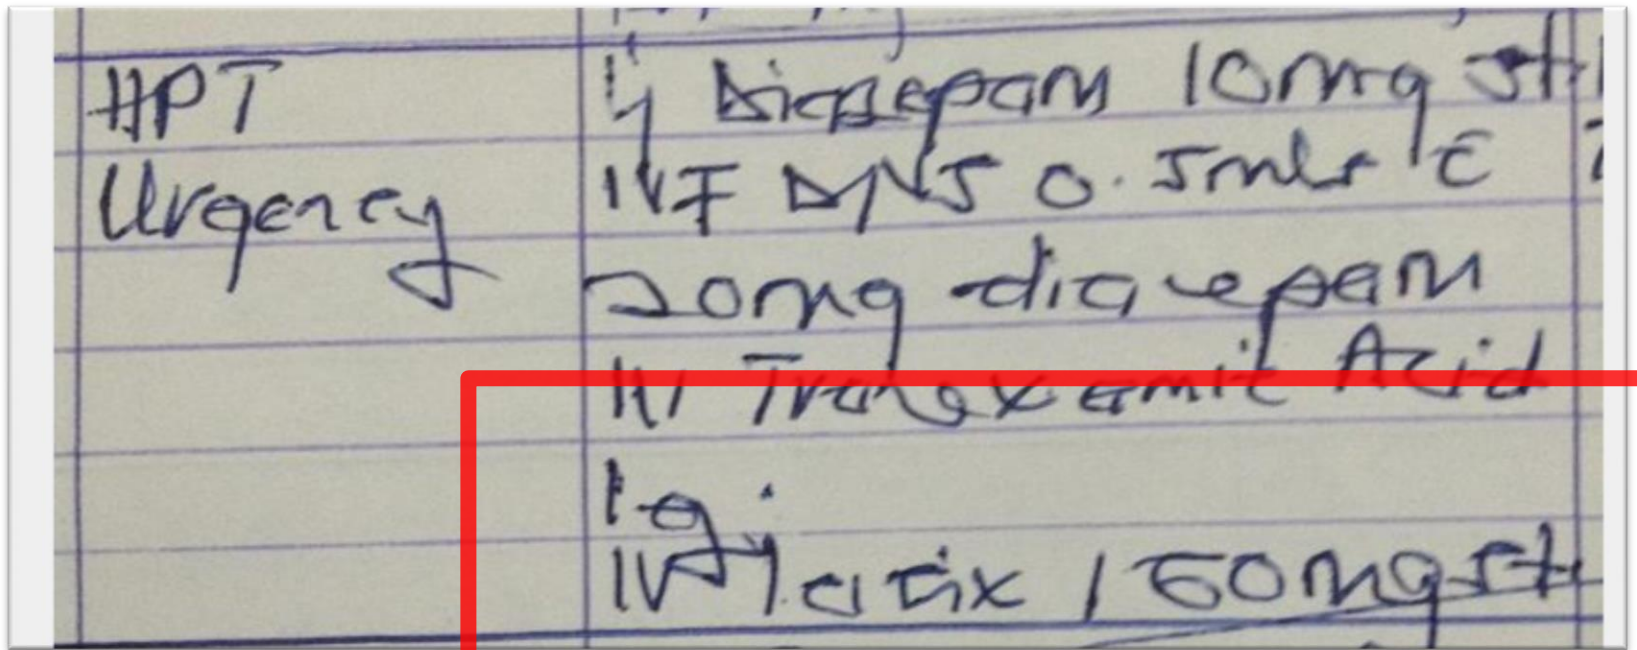 HPT
Urgency
Diazepam 10mg st
IVF DNS 0.5mls c
20mg diazepam
IV Tranexamic Acid
1g
IV Latix 160mg st